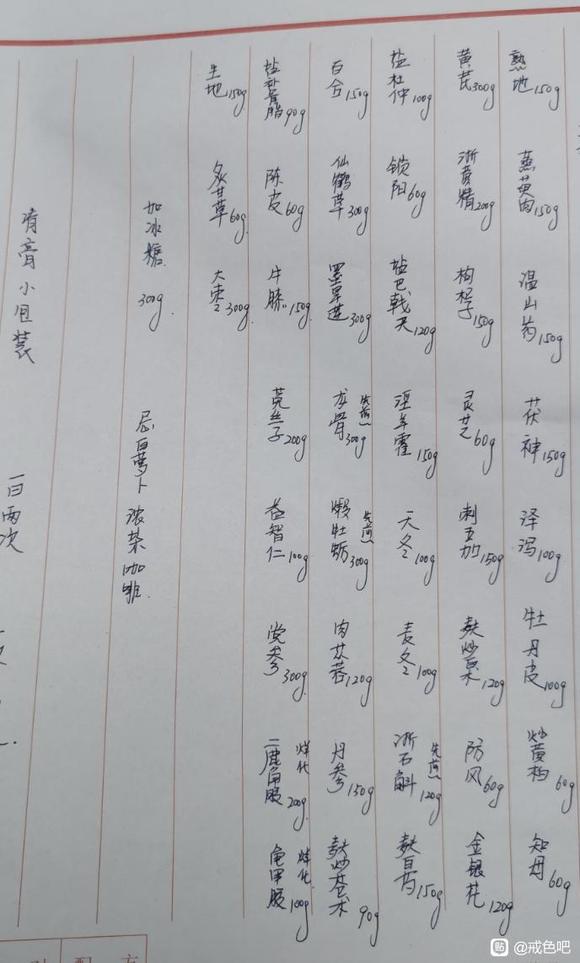 熟地150g
蒸萸肉150g
温山药150g
茯神150g
泽泻100g
牡丹皮100g
炒黄柏60g
知母60g
黄芪300g
浙黄精200g
枸杞子150g
灵芝60g
刺五加150g
麸炒白术120g
防风60g
金银花120g
盐杜仲100g
锁阳60g
盐巴戟天120g
淫羊霍150g
天冬100g
麦冬100g
浙石斛120g 先煎
麸白芍150g
百合150g
仙鹤草300g
墨旱莲300g
龙骨300g 先煎
煅牡蛎300g 先煎
肉苁蓉120g
丹参150g
麸炒苍术90g
盐补骨脂90g
陈皮60g
牛膝150g
菟丝子200g
益智仁100g
党参300g
鹿角胶200g 烊化
龟甲胶100g 烊化
生地150g
炙甘草60g
大枣300g
加冰糖 300g
忌白萝卜 浓茶 咖啡
清膏小包装
一日两次
配方
贴 @戒色吧